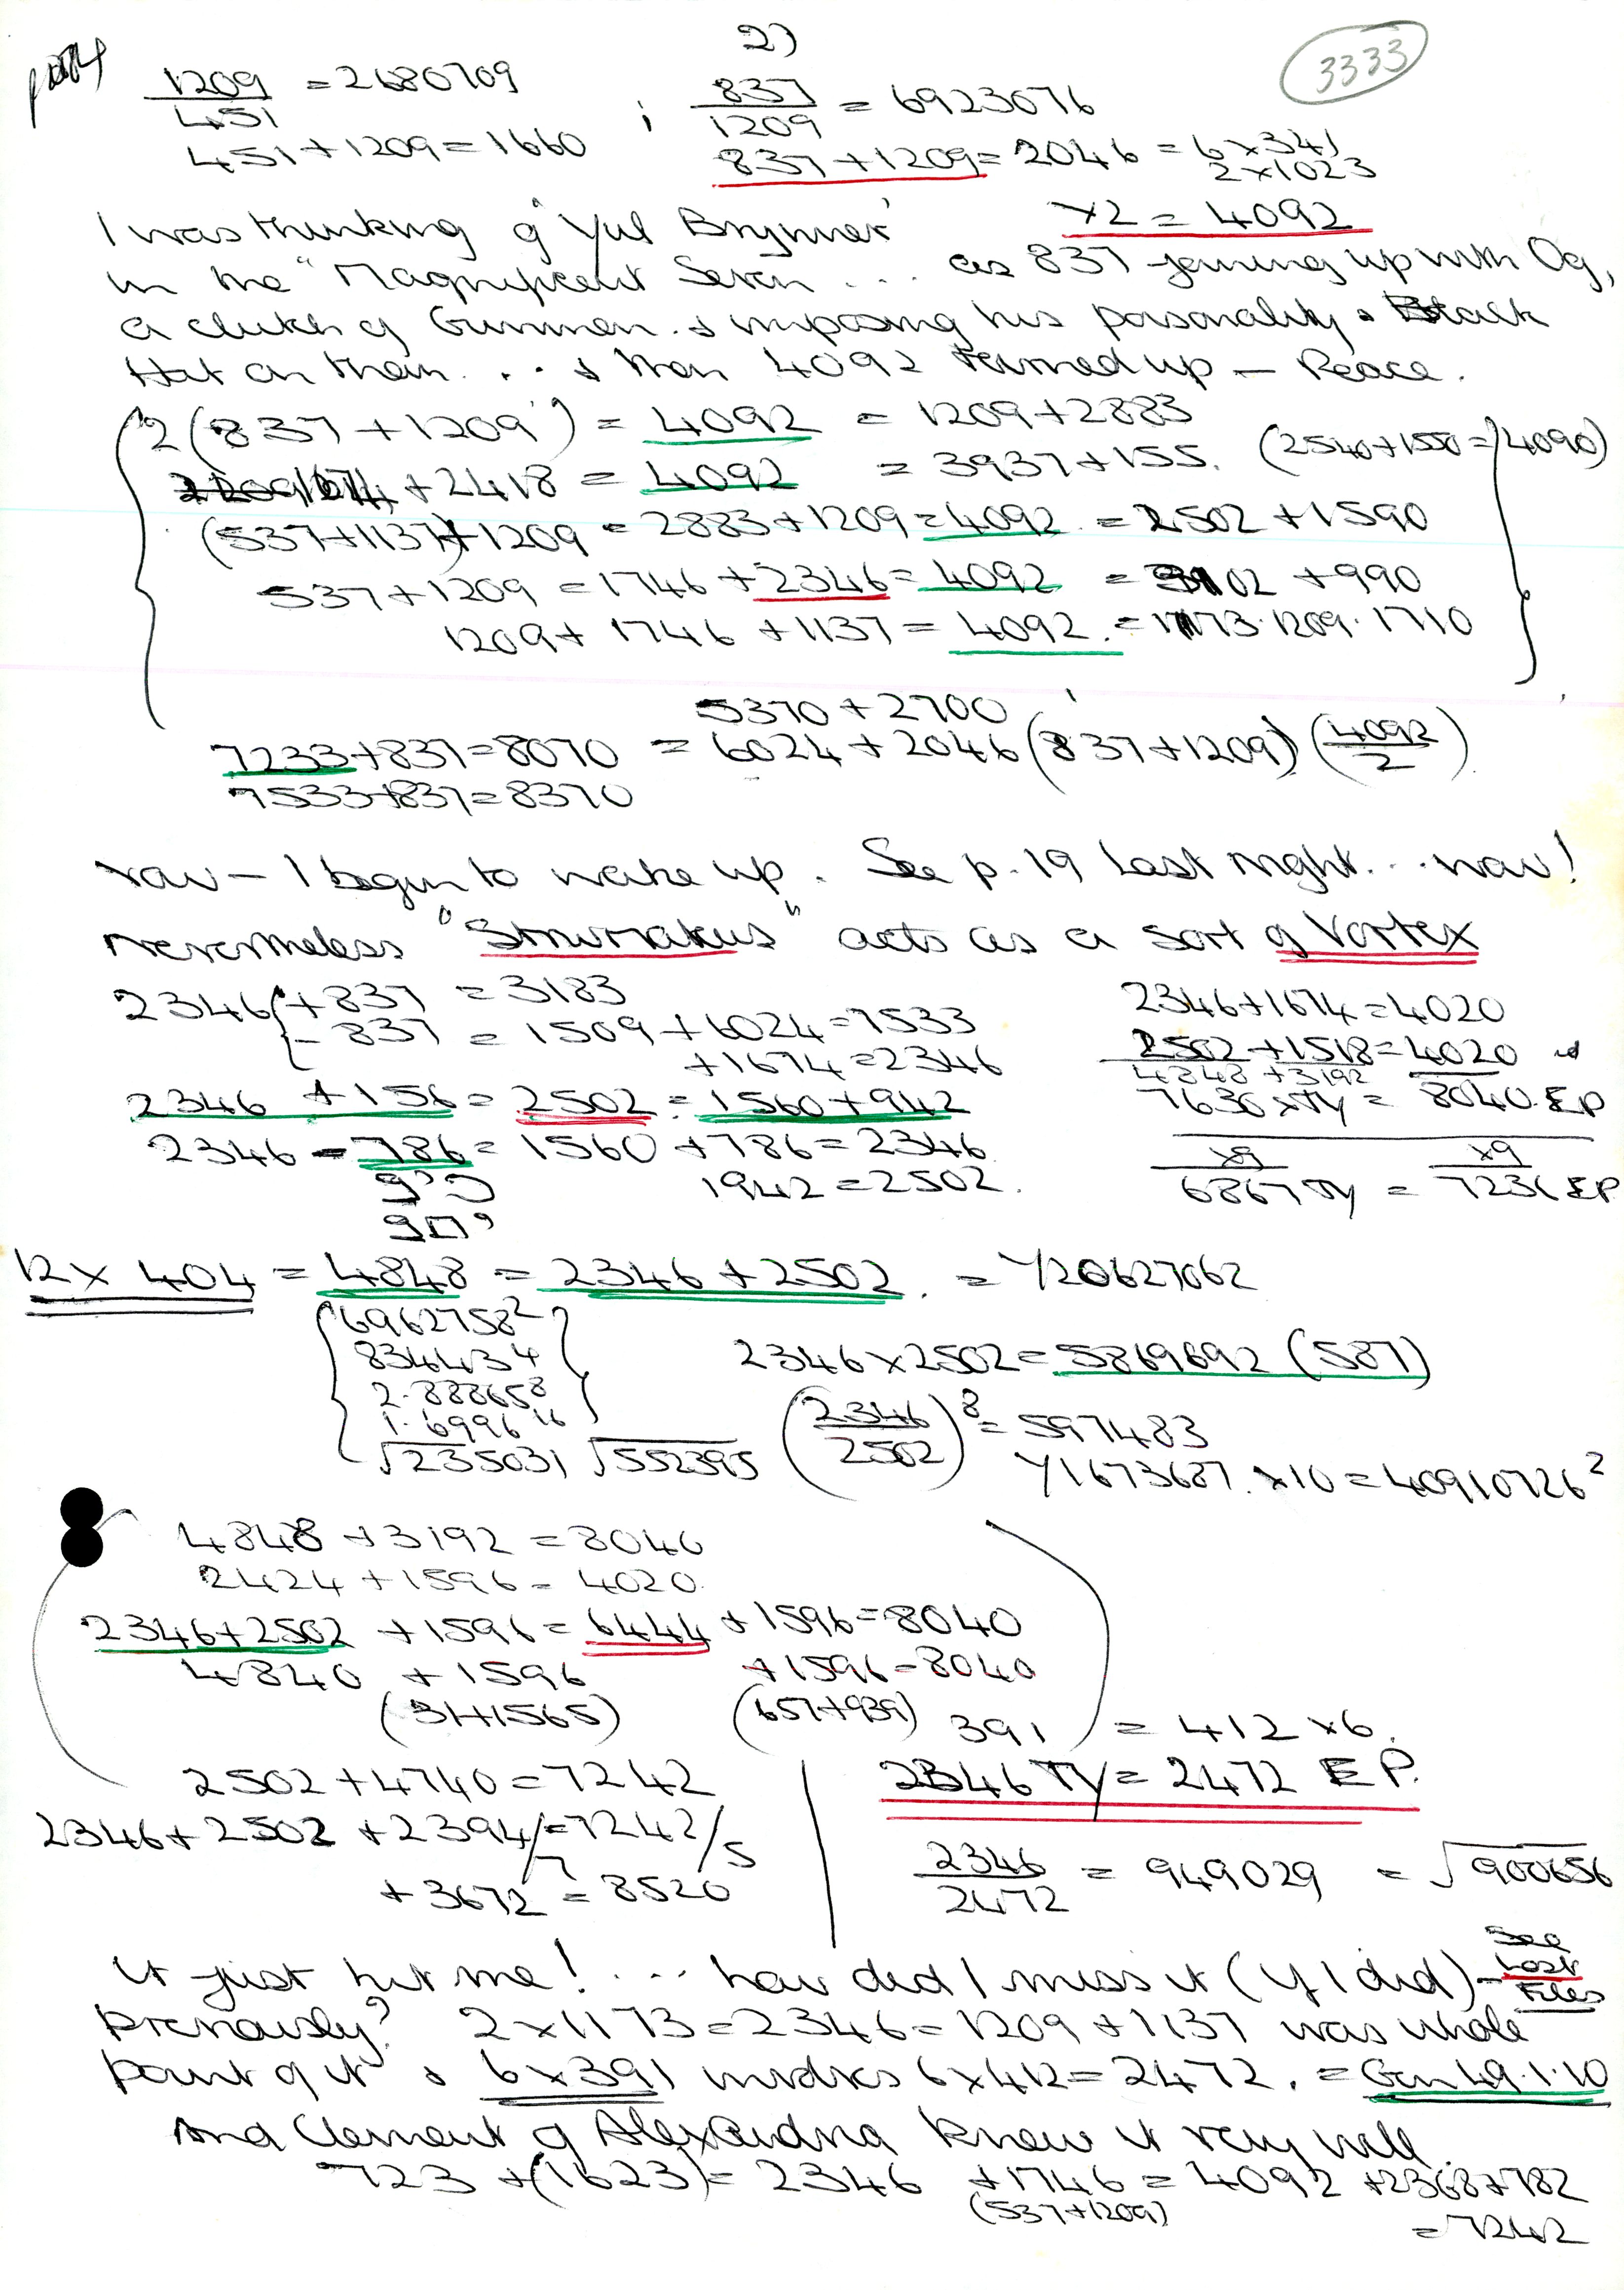 2)
3333
1209/451 = 2680709 ; 837/1209 = 6923076
451+1209=1660 837+1209=2046 = 6x341
2x1023
x2 = 4092
I was thinking of 'Yul Brynner'
in the "Magnificent Seven ... as 837 joining up with Og,
a clutch of Gunmen. & imposing his personality & Black
Hat on them. .. & then 4092 turned up — Peace.
2(837+1209) = 4092 = 1209+2883
+2418 = 4092 = 3937+155. (2540+1550=4090)
(537+1137)+1209 = 2883+1209=4092. = 2502+1590
537+1209=1746+2346=4092 = 3102+990
1209+1746+1137=4092.=1173.1209.1710
5370+2700
7233+837=8070 = 6024+2046(837+1209)(4092/2)
7533+837=8370
— I begin to wake up. See p.19 last night... wow!
Nevertheless acts as a sort of Vortex
2346 {+837 =3183
-837 = 1509+6024=7533
+1674=2346
2346+1674=4020
2502+1518=4020
4848+3192
7636 x TY = 8040.EP
2346 +156=2502=1560+942
2346-786=1560+786=2346
1942=2502.
x9 x9
6867 TY = 7236 EP
12x404=4848=2346+2502. =Y20627062
6962758²
834434⁴
2.888658⁸
1.6996¹⁶
√235031 √552395
2346x2502=5869692 (587)
(2346/2502)⁸=597483
Y1673687.x10=40910726²
4848+3192=8040
2424+1596=4020.
2346+2502+1596=6444+1596=8040
4840+1596 +1596=8040
(31+1565) (657+939)
391 = 412x6.
2346 TY=2472 EP.
2502+4740=7242
2346+2502+2394/=7242/5
+3672=8520
2346/2472 = 949029 = √900656
It just hit me! ... how did I miss it (if I did)- See Lost Files
previously? 2x1173=2346=1209+1137 was whole
point of it & 6x391 6x412=2472. = Gen 49.1.10
And Clement of Alexandria knew it very well.
723+(1623)=2346 +1746=4092+2368+782
(537+1209)
=7242